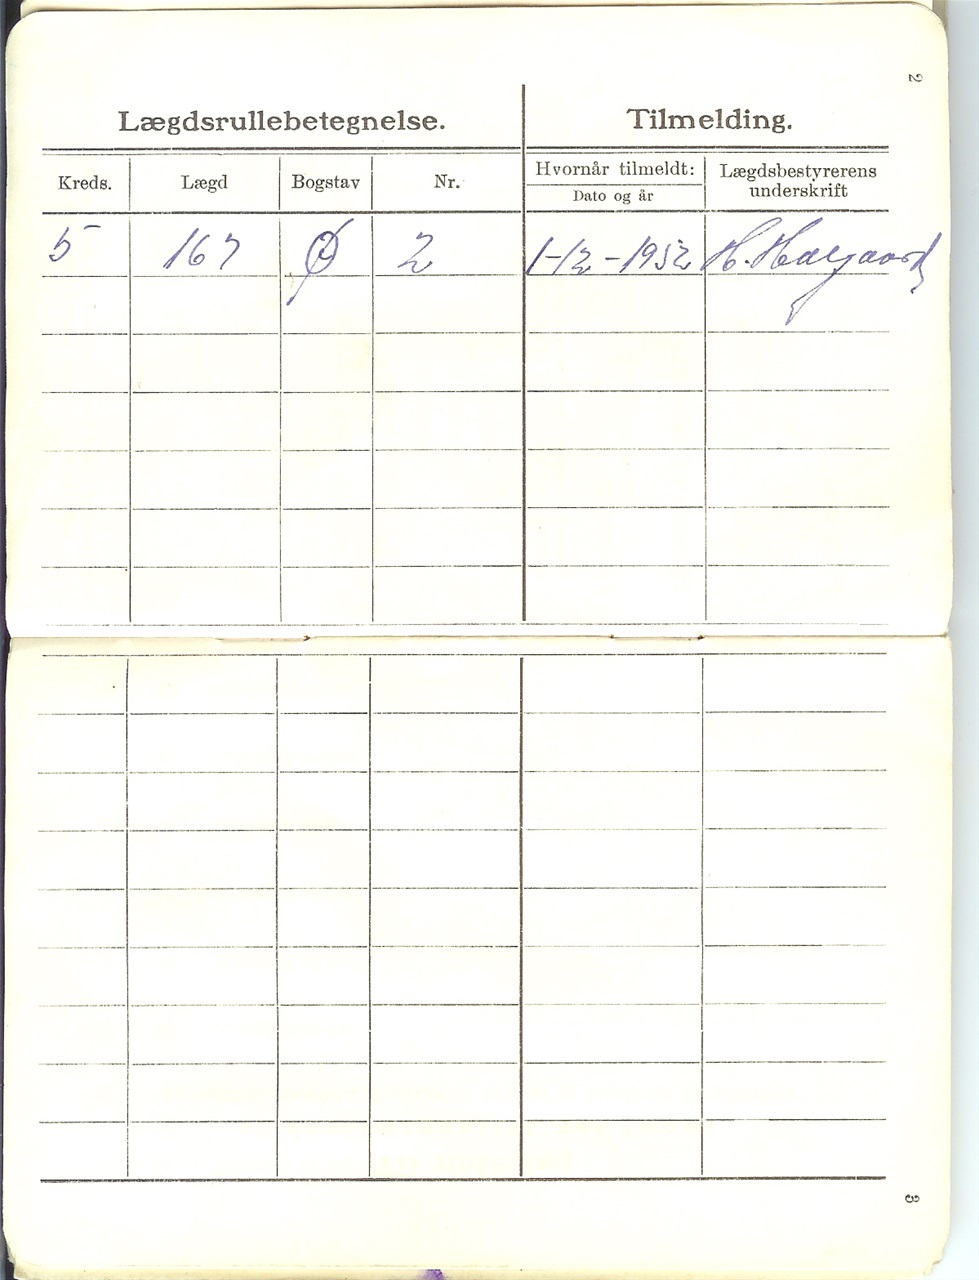 2
Lægdsrullebetegnelse. Tilmelding.
Kreds. Lægd Bogstav Nr. Hvornår tilmeldt: Dato og år Lægdsbestyrerens underskrift
5 167 Ø 2 1-12-1952 H.
3